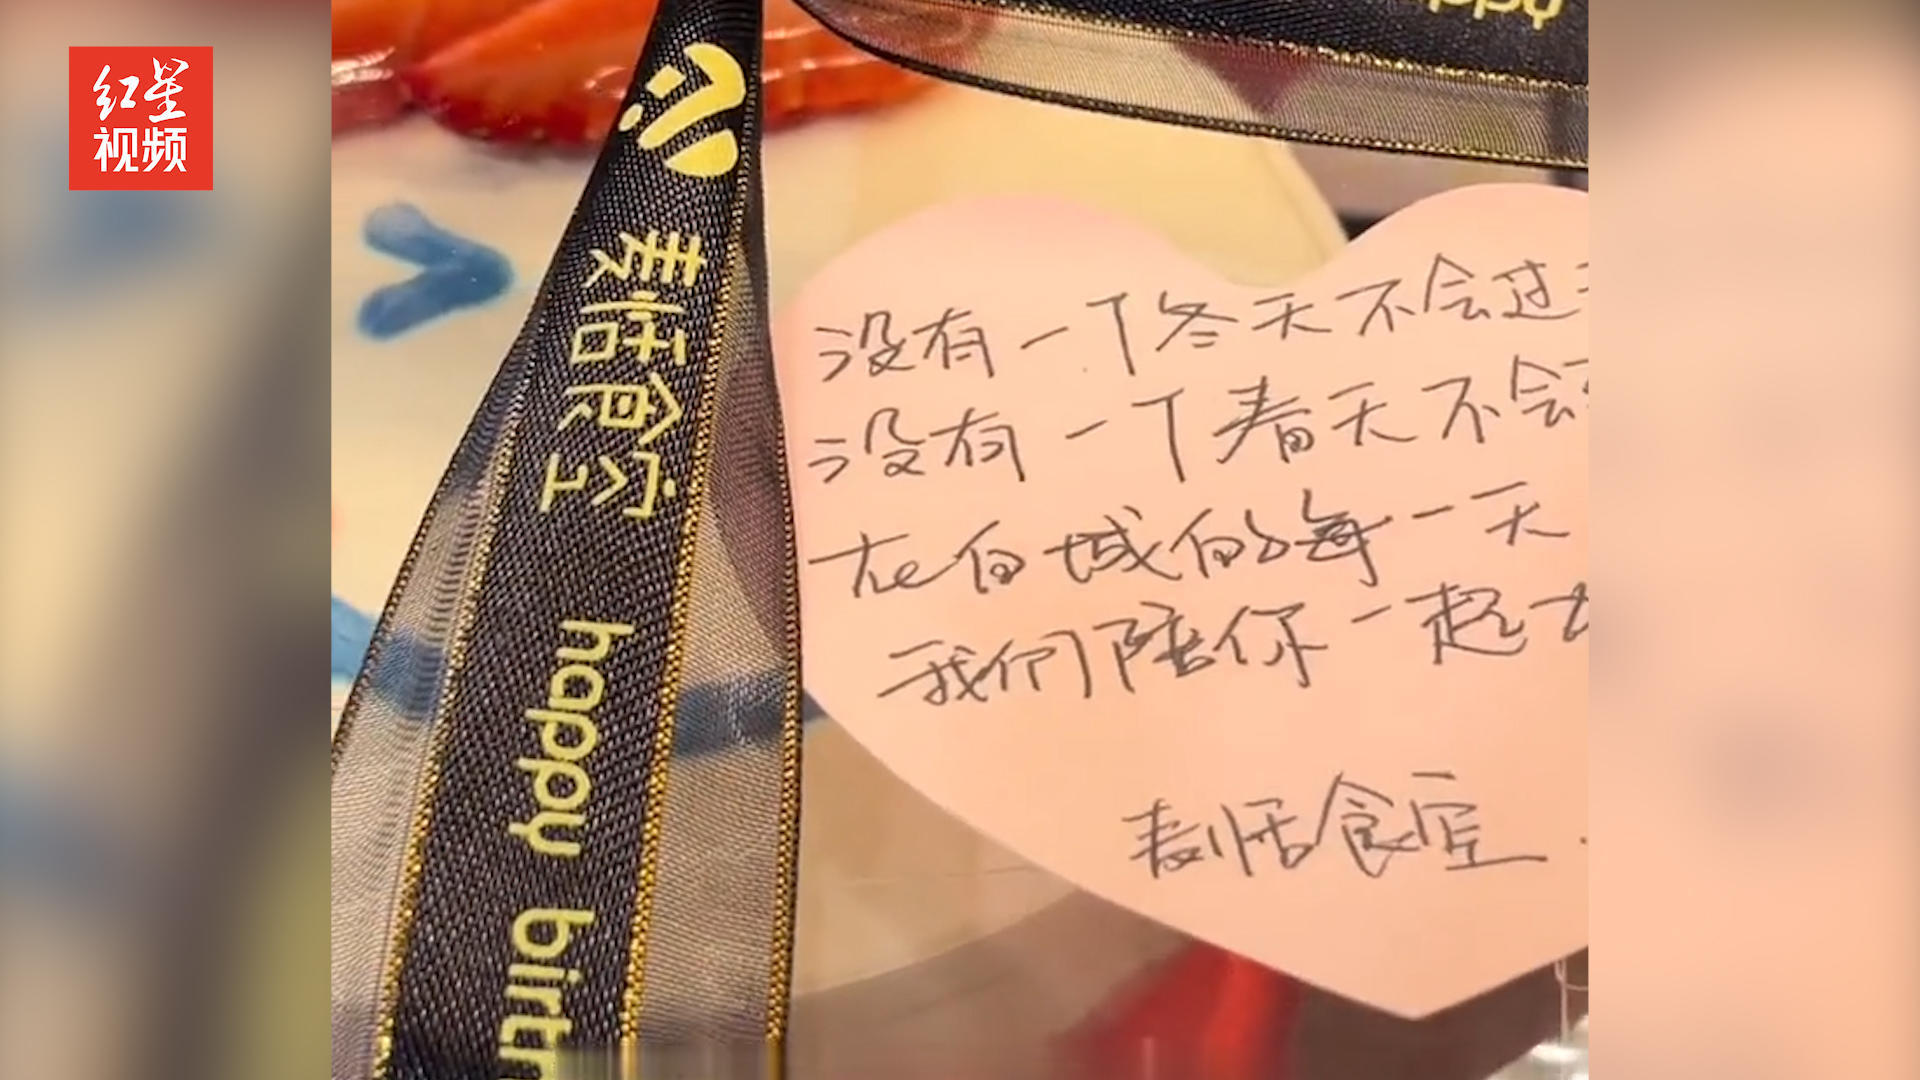 红星
视频
ppy
麦恬食空
happy birth
没有一个冬天不会过
没有一个春天不会
在白城的每一天
我们陪你一起
麦恬食空